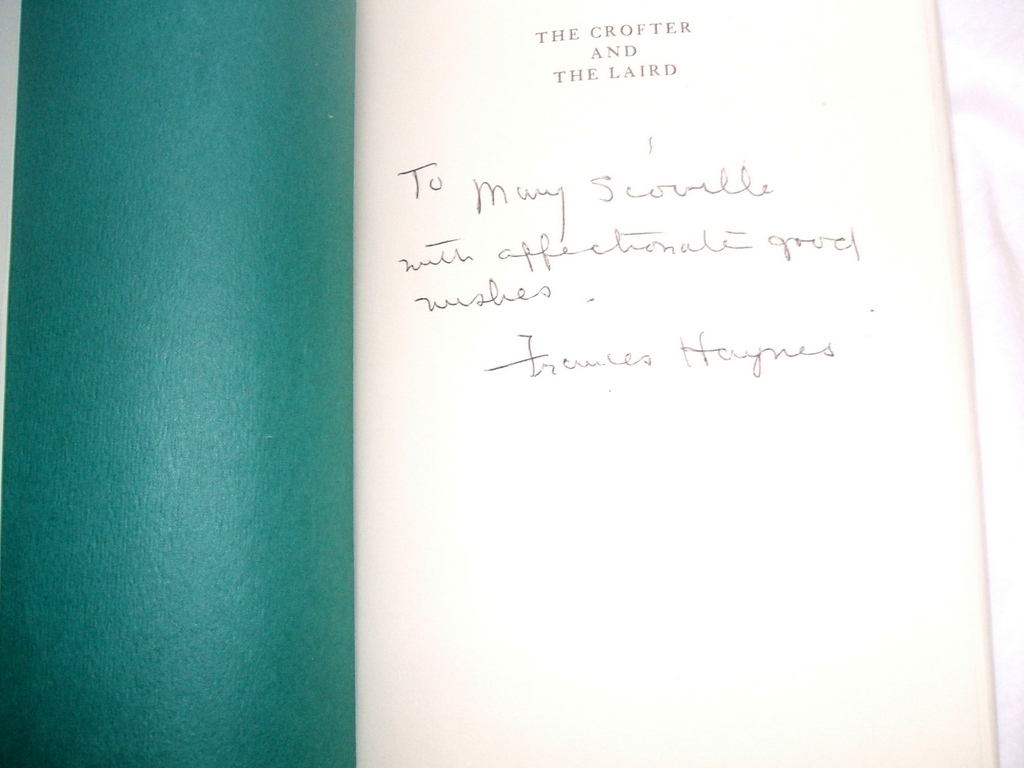 THE CROFTER
AND
THE LAIRD
To Mary Scoville
with affectionate good
wishes.
Frances Haynes